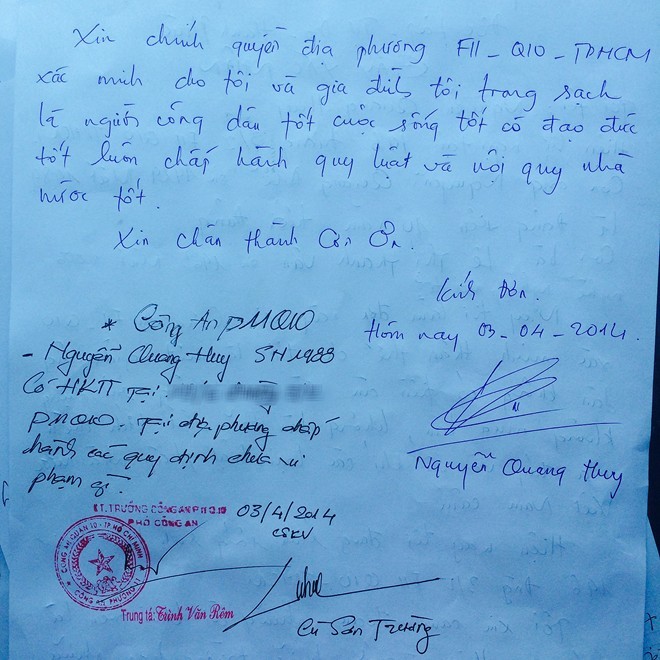 Xin chính quyền địa phương F11_Q10_TPHCM
xác minh cho tôi và gia đình tôi trong sạch
là người công dân tốt cuộc sống tốt có đạo đức
tốt luôn chấp hành quy luật và nội quy nhà
nước tốt.
Xin chân thành Cảm Ơn.
Kính Đơn.
Hôm nay 03_04_2014.
Nguyễn Quang Huy
* Công An P11Q10
- Nguyễn Quang Huy SN1988
Có HKTT Tại
P11Q10. Tại địa phương chấp
hành các quy định chưa vi
phạm gì.
03/4/2014
CSKV
KT.TRƯỞNG CÔNG AN P11 Q.10
PHÓ CÔNG AN
CÔNG AN QUẬN 10 - TP HỒ CHÍ MINH
CÔNG AN PHƯỜNG
Trung tá: Trịnh Văn Rêm
Cù Sơn Trường